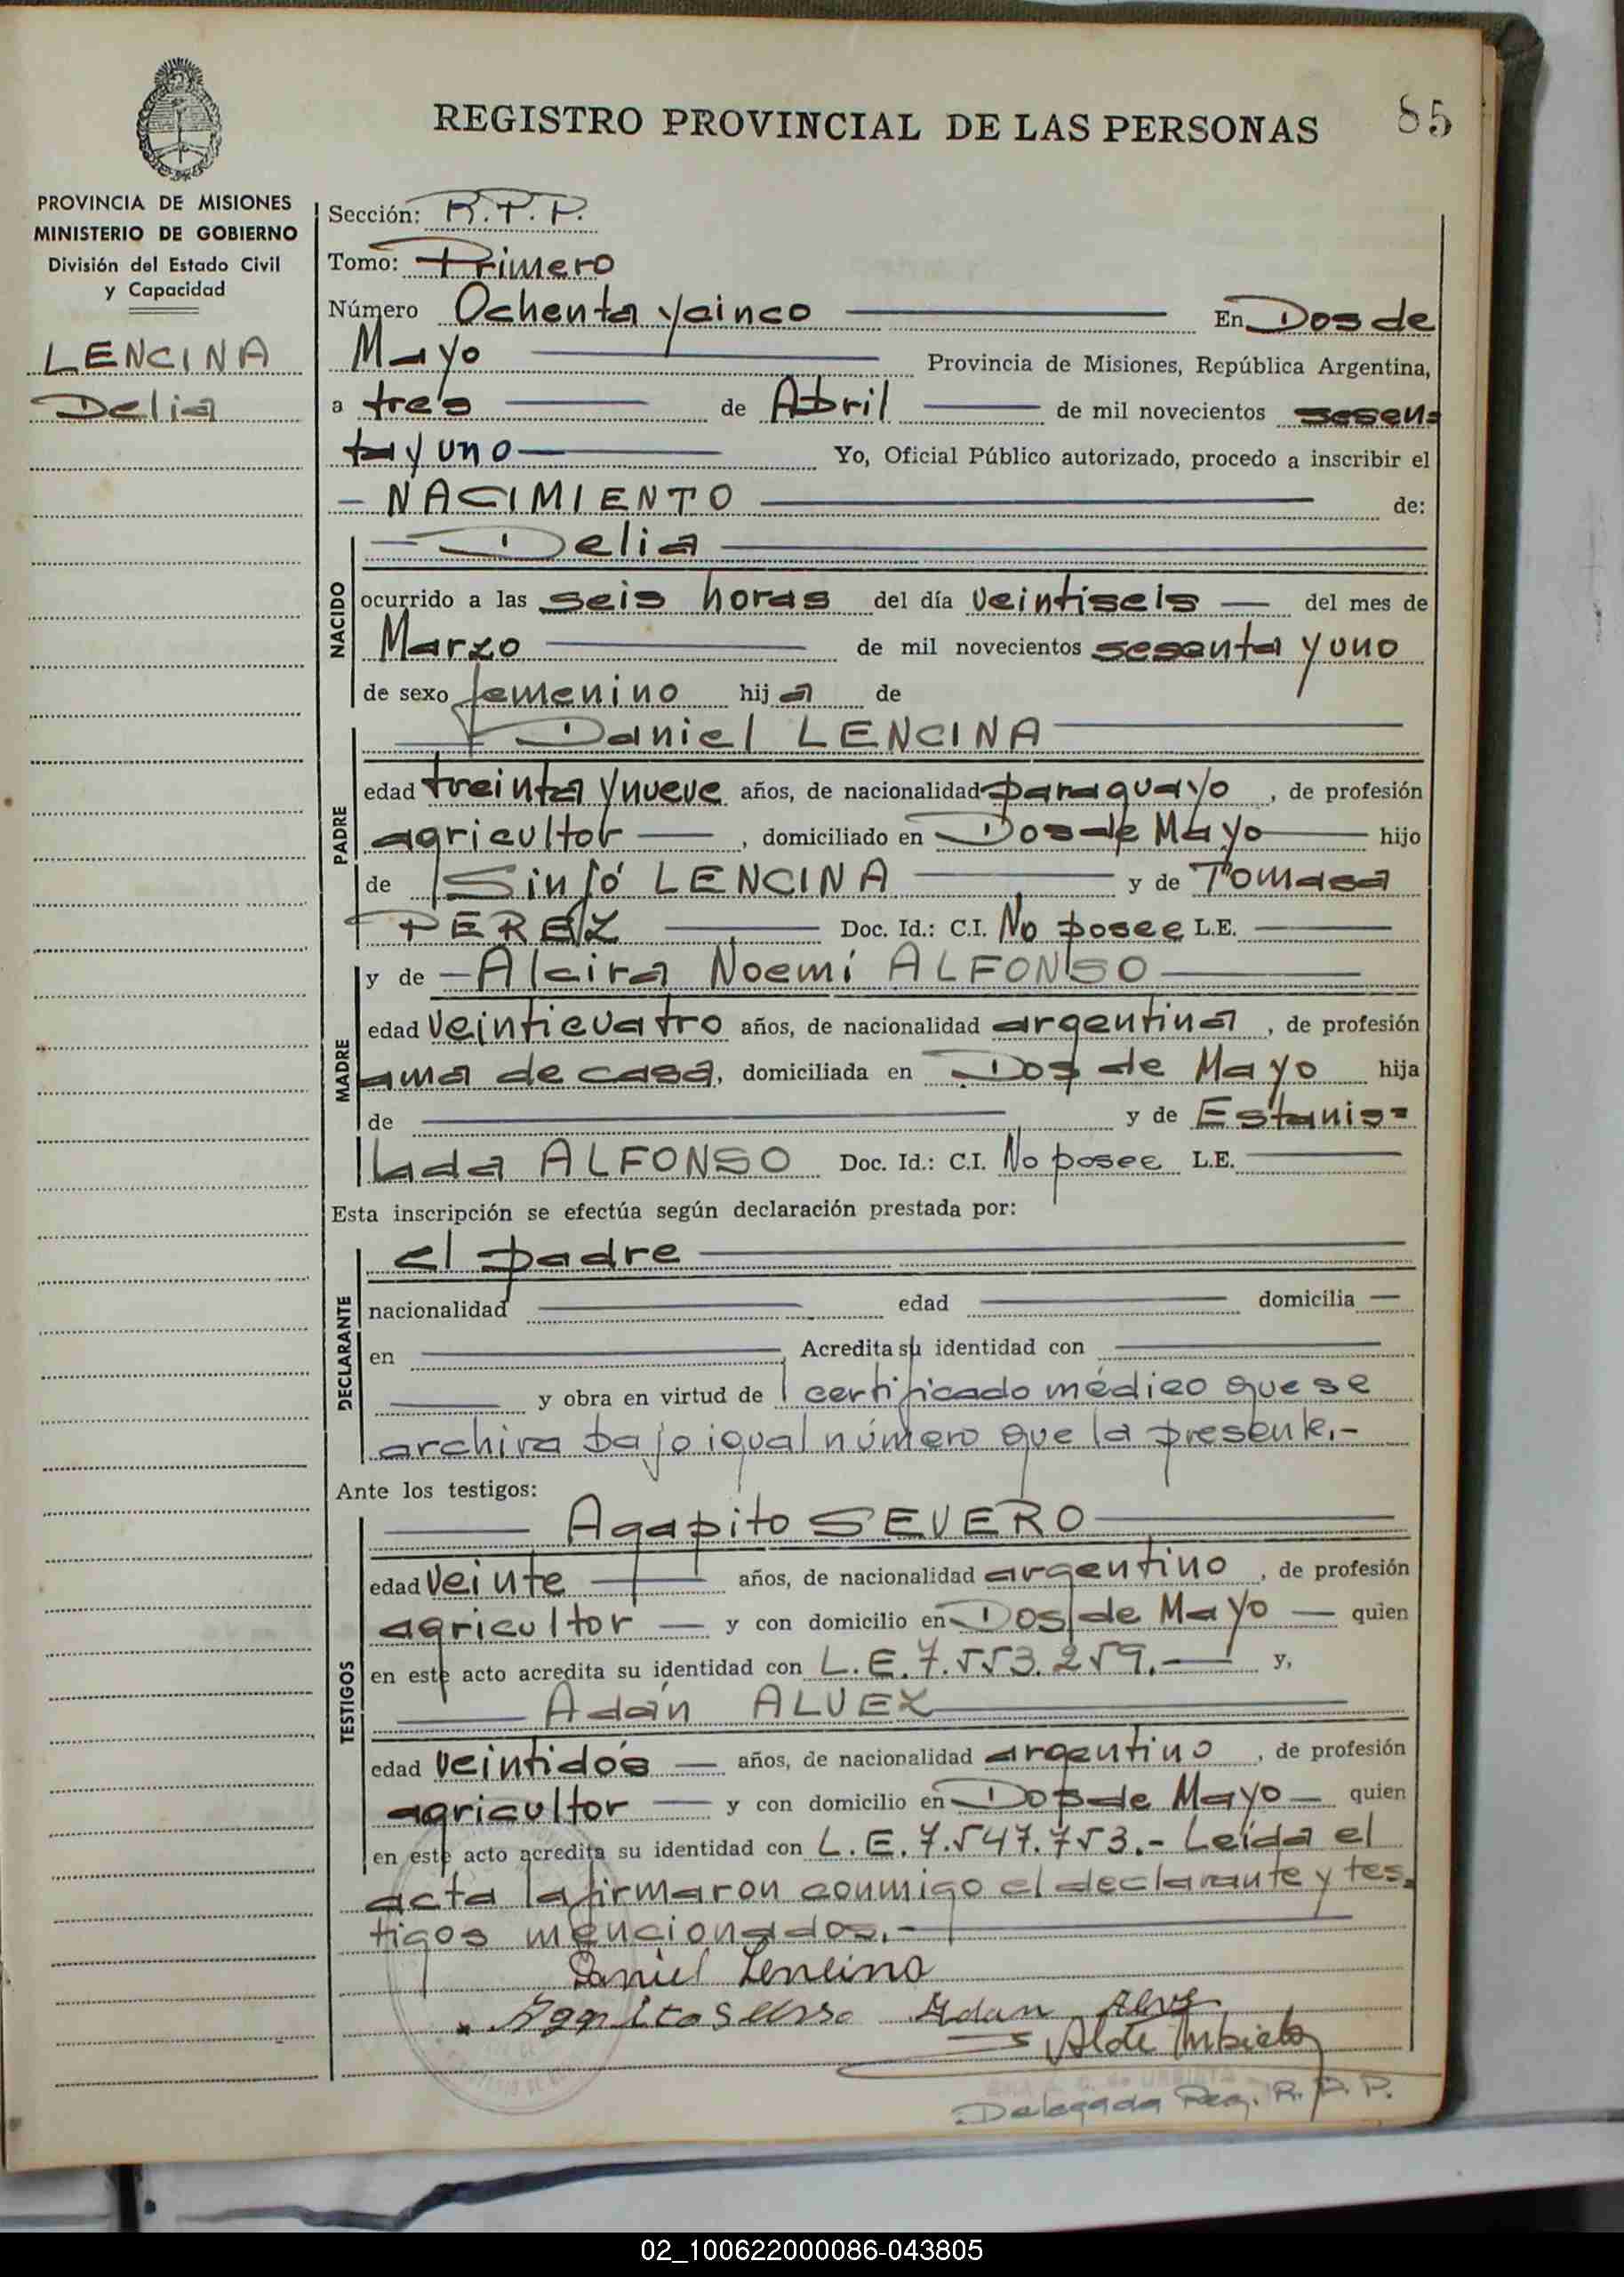 85
REGISTRO PROVINCIAL DE LAS PERSONAS
PROVINCIA DE MISIONES
MINISTERIO DE GOBIERNO
División del Estado Civil
y Capacidad
LENCINA
Delia
Sección: R.P.P.
Tomo: Primero
Número Ochenta y cinco En Dos de
Mayo Provincia de Misiones, República Argentina,
a tres de Abril de mil novecientos sesen=
ta y uno Yo, Oficial Público autorizado, procedo a inscribir el
- NACIMIENTO de:
NACIDO
Delia
ocurrido a las seis horas del día veintiseis del mes de
Marzo de mil novecientos sesenta y uno
de sexo femenino hija de
PADRE
Daniel LENCINA
edad treinta y nueve años, de nacionalidad paraguayo, de profesión
agricultor, domiciliado en Dos de Mayo hijo
de LENCINA y de Tomasa
PEREZ Doc. Id.: C.I. No posee L.E.
MADRE
y de Alcira Noemí ALFONSO
edad veinticuatro años, de nacionalidad argentina, de profesión
ama de casa, domiciliada en Dos de Mayo hija
de y de Estanis=
lada ALFONSO Doc. Id.: C.I. No posee L.E.
Esta inscripción se efectúa según declaración prestada por:
DECLARANTE
el padre
nacionalidad edad domicilia
en Acredita su identidad con
y obra en virtud de certificado médico que se
archiva bajo igual número que la presente.-
Ante los testigos:
TESTIGOS
Agapito SEVERO
edad veinte años, de nacionalidad argentino, de profesión
agricultor y con domicilio en Dos de Mayo quien
en este acto acredita su identidad con L.E. 7.553.259.- y,
Adán ALVEZ
edad veintidós años, de nacionalidad argentino, de profesión
agricultor y con domicilio en Dos de Mayo quien
en este acto acredita su identidad con L.E. 7.547.753.- Leída el
acta la firmaron conmigo el declarante y tes=
tigos mencionados.-
Daniel Lencina
Adan
Delegada Reg. R.P.P.
02_100622000086-043805